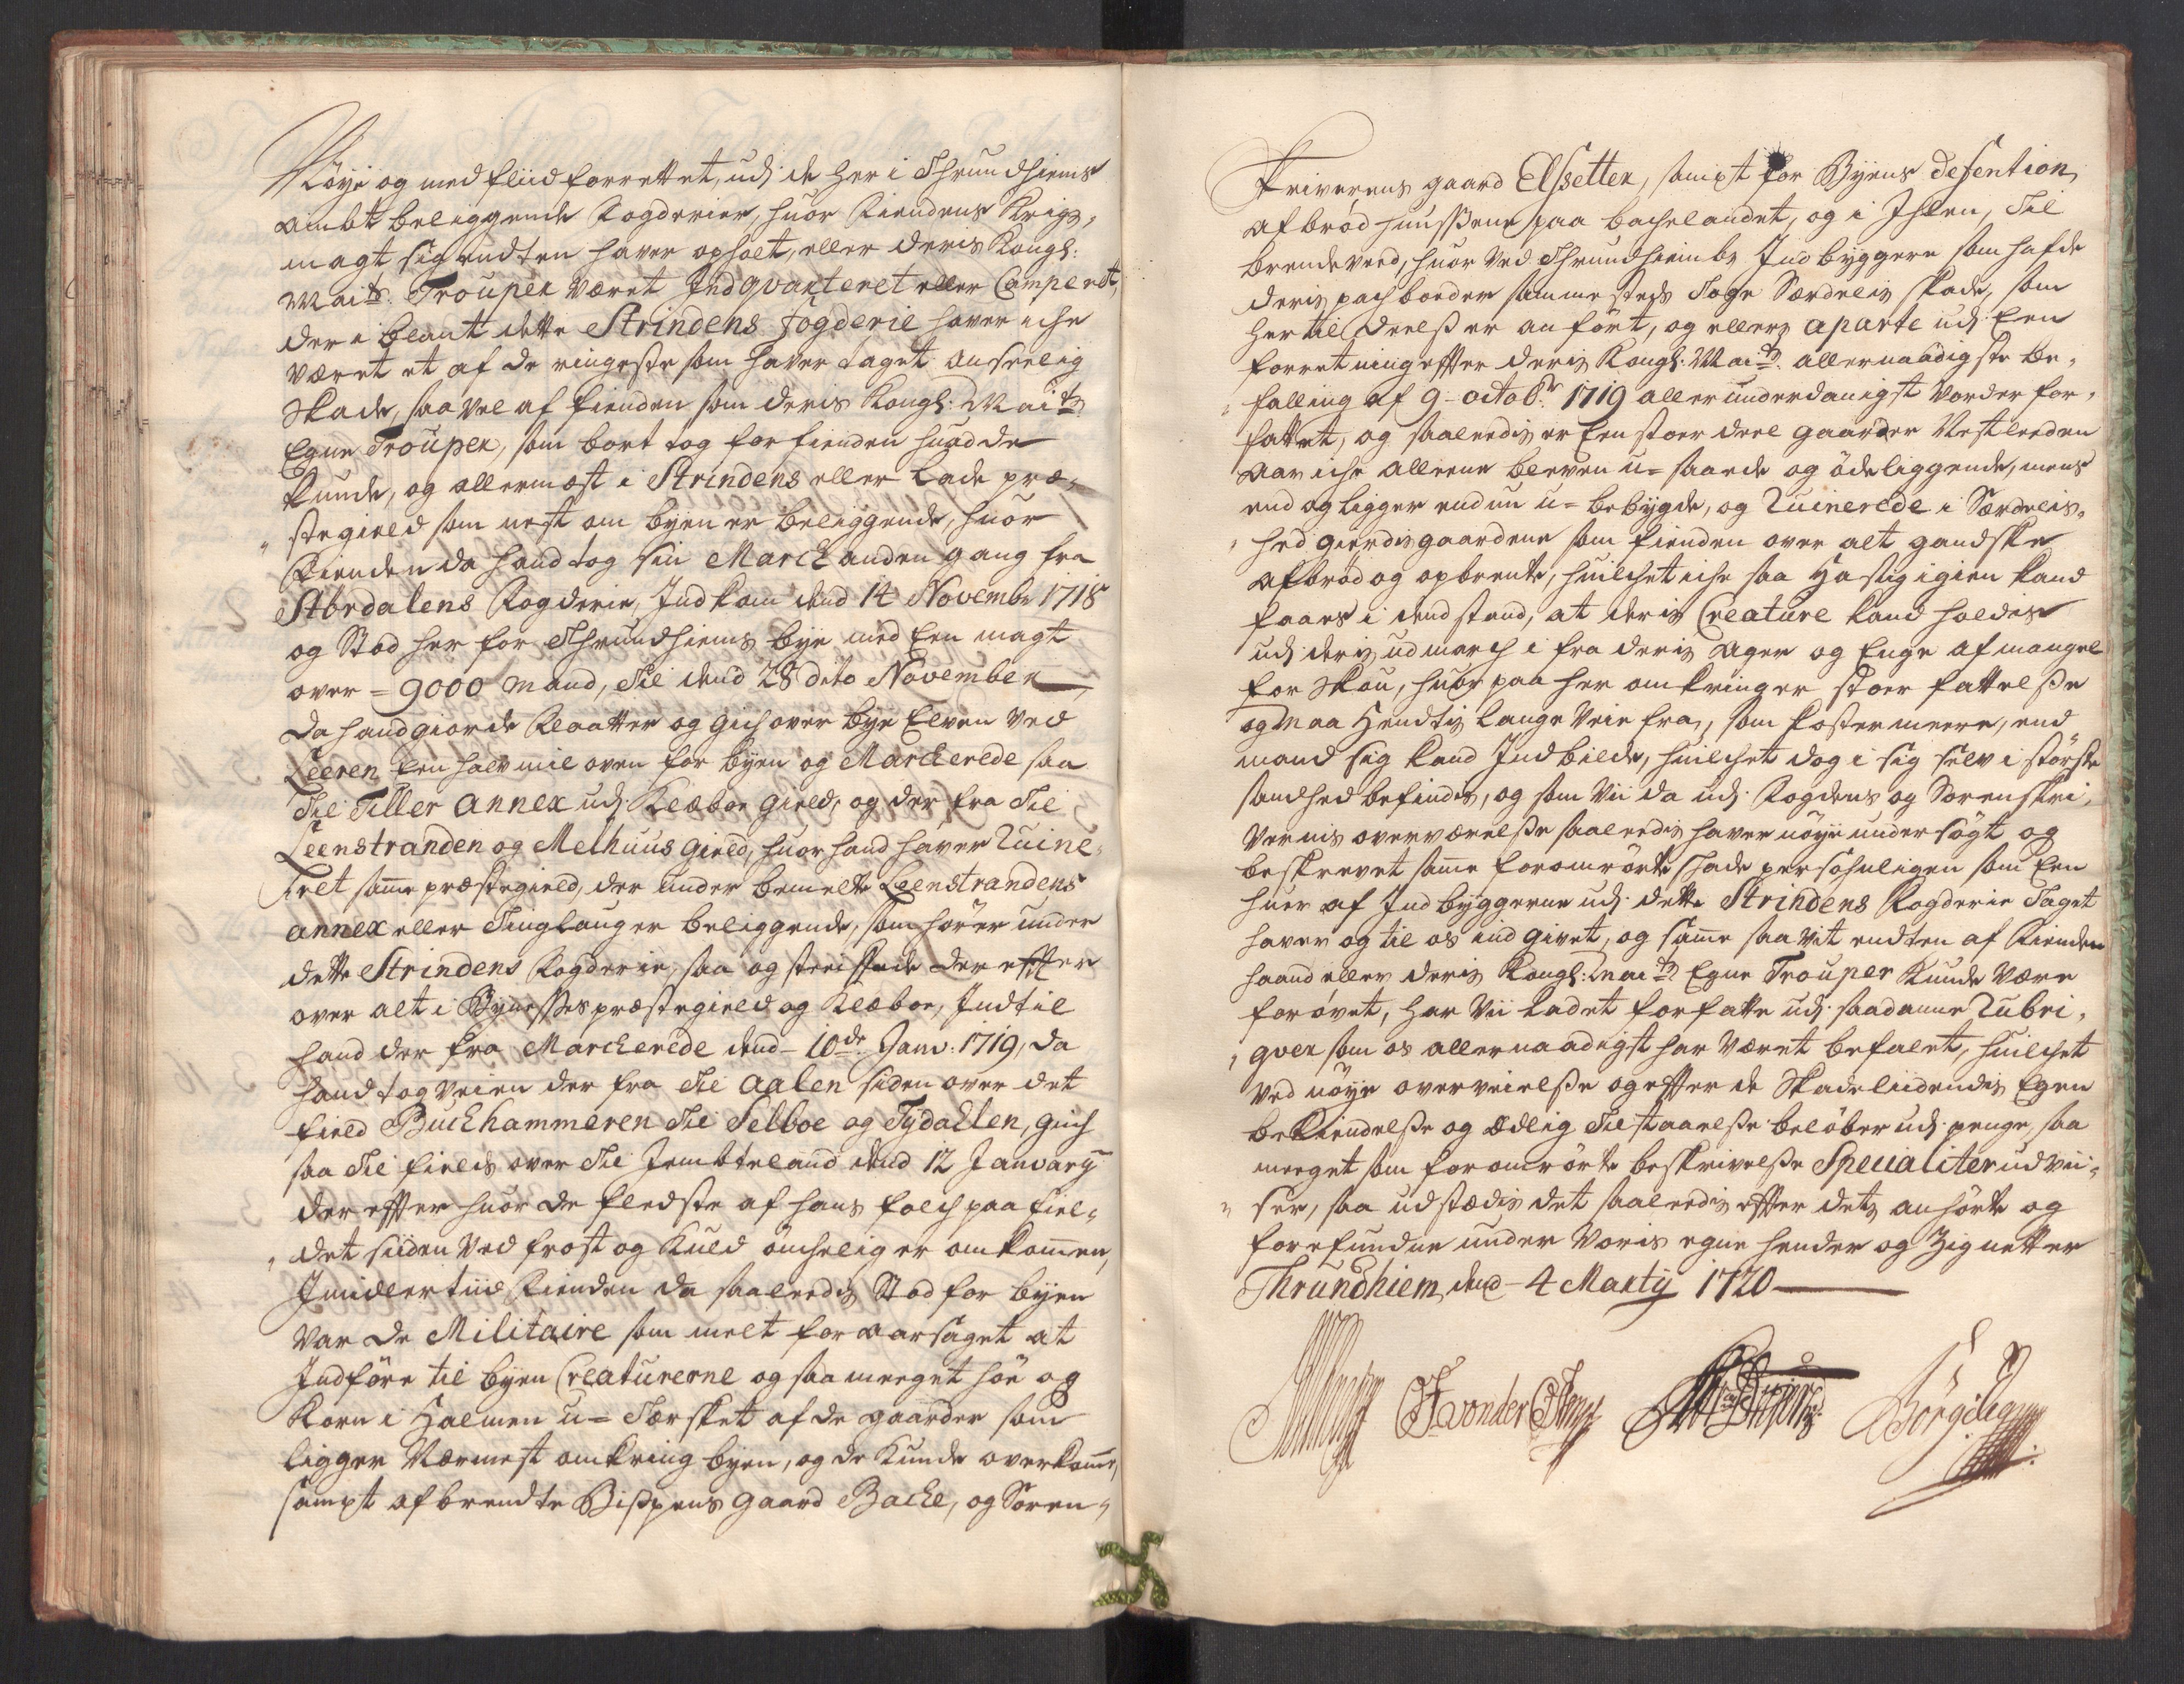 Nöye og med fliid forrettet, udj de her i Thrundhiems
ambt beliggende Fogderier, huor Fiendens Krigs-
magt sig endten haver opholt, eller Deris Kongl:
Maits. Trouper været Indqvarteret eller Camperet,
der i blant dette Strindens fogderie haver iche
været et af de ringeste som haver taget anseelig
Skade, saa vel af fienden som Deris Kongl: Maits
Egne Trouper, som bort tog for fienden huad de
kunde, og allermest i Strindens eller Lade præ-
stegield som nest om byen er beliggende, huor
Fienden da hand tog sin March anden gang fra
Stördalens Fogderie, Indkom dend 14 Novembr 1718
og Stod her for Thrundhiems bye med Een magt
over = 9000 mand, Til dend 28 dito November
da hand giorde Flaatter og gich over bye Elven ved
Leeren Een halv mil oven for byen og Marcherede saa
Til Tiller annex udj Klæboe gield, og der fra Til
Leenstranden og Melhuus gield, huor hand haver Ruine-
ret samme præstegield, der under bemelte Leenstrandens
annex eller Tinglaug er beliggende, som hörer under
dette Strindens Fogderie, saa og streiffede der effter
over alt i Bynessets præstegield og Klæboe, Indtil
hand der fra Marcherede dend 10de Janv: 1719, da
hand tog veien der fra Til Aalen siden over det
field Buchhammeren Til Selboe og Tydallen, gich
saa Til fields over Til Jembteland dend 12 January
der effter huor de fleeste af hans folch paa fiel-
det siiden ved frost og Kuld ömkelig er omkommen,
Imidlertiid Fienden da saaledis Stod for byen
var de Militaire som melt foraarsaget at
Indföre til byen Creaturerne og saa meeget höe og
Korn i Halmen u-Tærsket af de gaarder som
ligger Nærmest omkring byen, og de kunde overkomme,
sampt afbrendte Bispens gaard Bache, og Soren-
skriverens gaard Elssetter, sampt for Byens defention
afbröd huussene paa bachelandet, og i Ihlen, Til
brendeveed, huor ved Thrundhiembs Indbyggere som hafde
deris pachboder samme steds Toge Særdelis skade, som
her til deels er anfört, og ellers aparte udj Een
forretning effter Deris Kongl: Maits. allernaadigste be-
falling af 9 octobr 1719 allerunderdanigst vorder for-
fattet, og saaledis er Een stoer deel gaarder Nestleeden
aar iche alleene bleven u-saaede og öde liggende, mens
end og ligger endnu u-bebygde, og Ruinerede i Særdelis-
hed gierdisgaardene som fienden over alt gandske
afbröd og opbrente, huilchet iche saa hastig igien kand
faaes i dend stand, at deris Creature kand holdes
udj deris udmarch i fra deris Ager og Enge af mangel
for Skou, huor paa her omkring er stoer fattelsse
og maa hendtis lange veie fra, som koster meere, end
mand sig kand Indbilde, huilchet dog i sig selv i störste
sandhed befindis, og som vii da udj Fogdens og Sorenskri-
vernis overværelsse saaledis haver nöye undersögt og
beskrevet samme foromrörte skade persohnligen som Een
huer af Indbyggerne udj dette Strindens Fogderie Taget
haver og til os indgivet, og samme saa vit endten af Fiendens
haand eller Deris Kongl: Maits Egne Trouper kunde være
forövet, har vii ladet forfatte udj saadanne Rubri-
qver som os allernaadigst har været befalet, huilchet
ved nöye overveielsse og effter de Skadeliidendis Egen
bekiendelsse og Ædlig Tilstaaelsse belöber udj penge, saa
meeget som foromrörte beskrivelsse Specialiter udvii-
ser, saa udstædis det saaledis effter dets anhörte og
forefundne under voris egne hender og Zignetter
Thrundhiem dend 4 Marty 1720
von der Osten